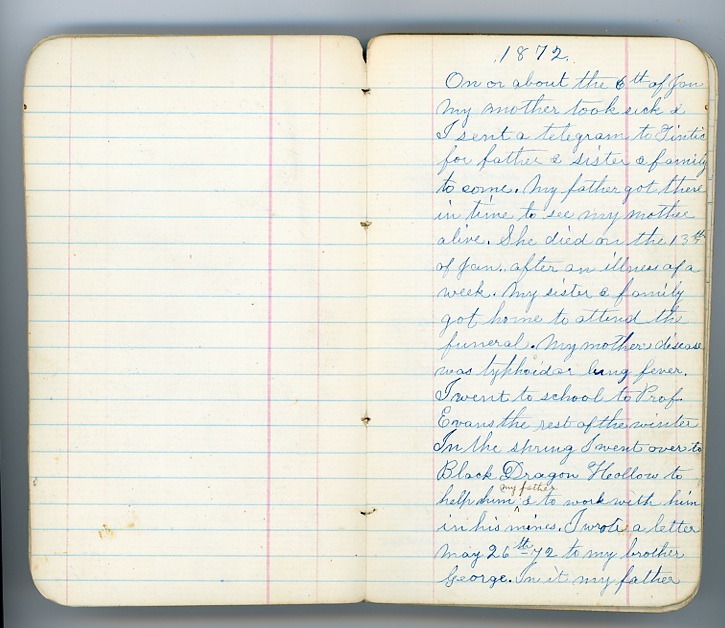 1872.
On or about the 6th of Jan
my mother took sick &
I sent a telegram to Tintic
for father & sister & family
to come. My father got there
in time to see my mother
alive. She died on the 13th
of Jan. after an illness of a
week. My sister & family
got home to attend the
funeral. My mothers disease
was typhoid or lung fever.
I went to school to Prof.
Evans the rest of the winter
In the spring I went over to
Black Dragon Hollow to
my father
help him & to work with him
in his mines. I wrote a letter
May 26th 72 to my brother
George. In it my father